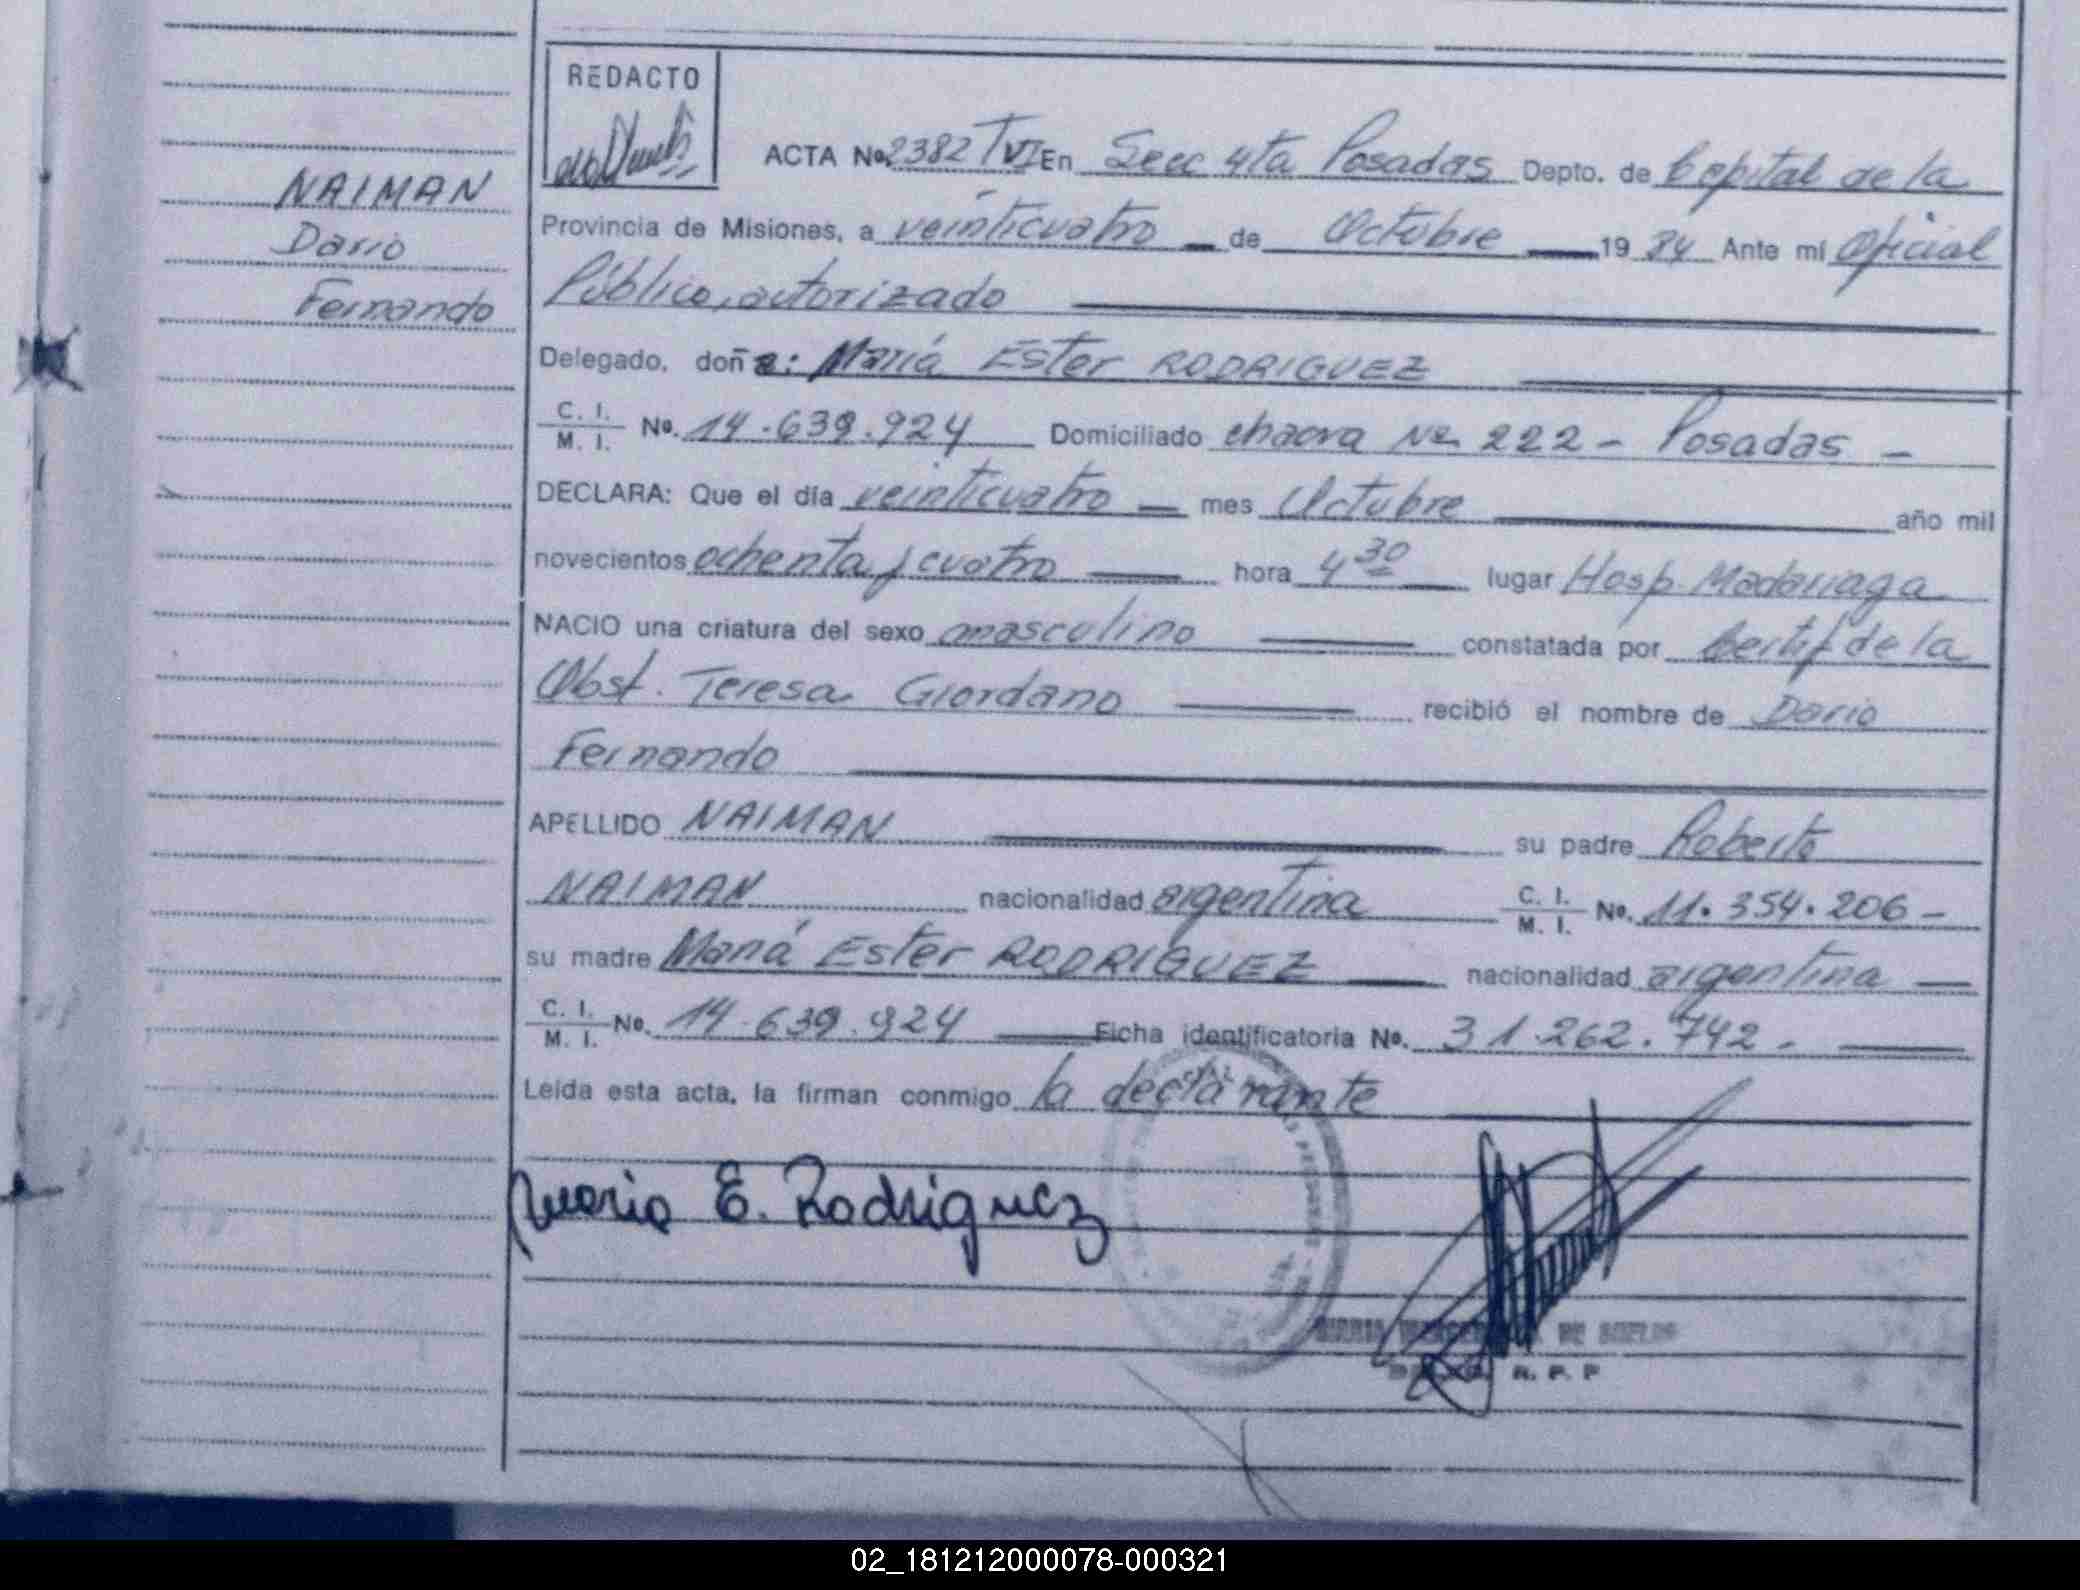 REDACTO
NAIMAN
Dario
Fernando
ACTA No. 2382 T VI En Secc 4ta Posadas Depto. de Capital de la
Provincia de Misiones, a veinticuatro de Octubre 19 84 Ante mí Oficial
Público, autorizado
Delegado, doña: María Ester RODRIGUEZ
C. I. / M. I. No. 14.639.924 Domiciliado chacra No 222 - Posadas -
DECLARA: Que el día veinticuatro mes Octubre año mil
novecientos ochenta y cuatro hora 4 30 lugar Hosp. Madariaga
NACIO una criatura del sexo masculino constatada por Certif de la
Obst. Teresa Giordano recibió el nombre de Dario
Fernando
APELLIDO NAIMAN su padre Roberto
NAIMAN nacionalidad argentina C. I. / M. I. No. 11.354.206 -
su madre María Ester RODRIGUEZ nacionalidad argentina
C. I. / M. I. No. 14.639.924 Ficha identificatoria No. 31.262.742.-
Leída esta acta, la firman conmigo la declarante
Maria E. Rodriguez
R. P. P
02_181212000078-000321